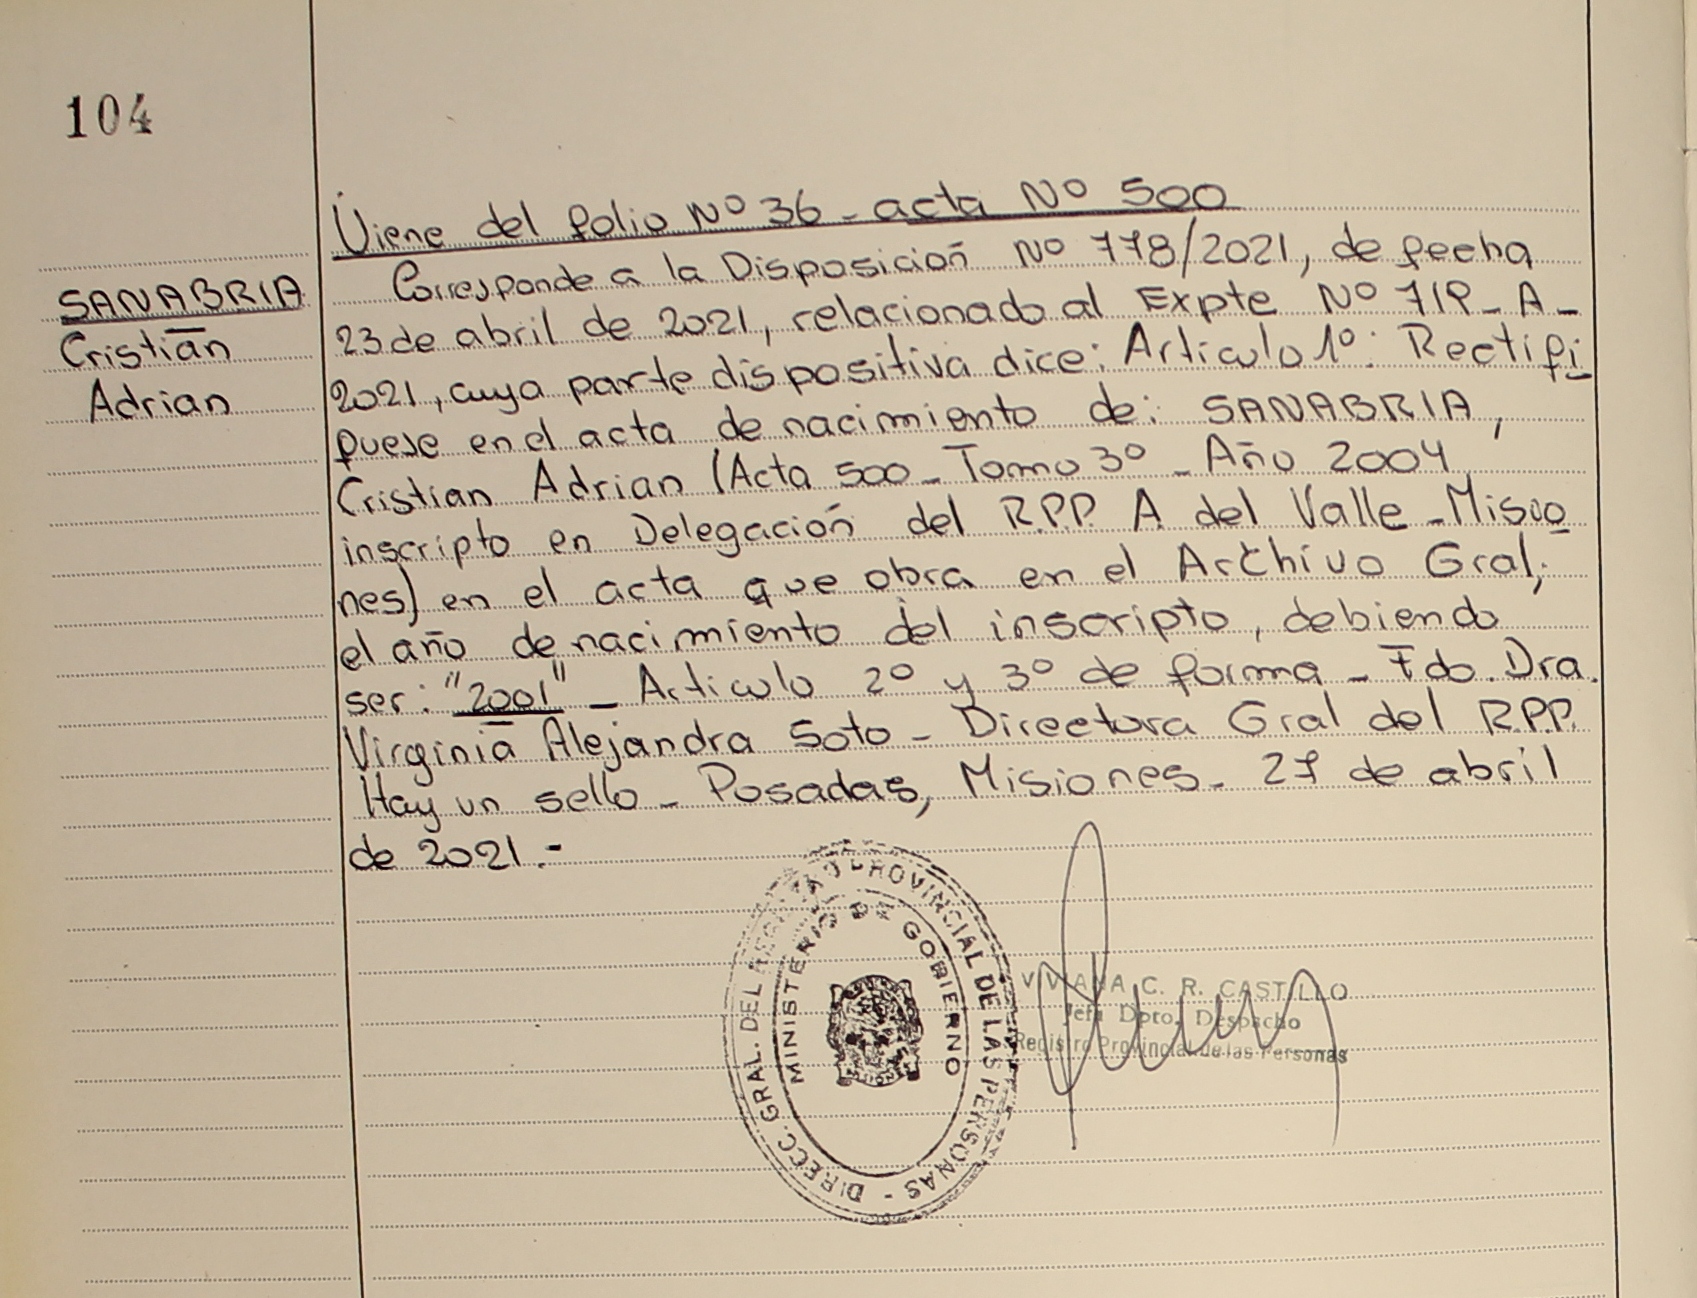 104
Viene del folio Nº 36 - acta Nº 500
Corresponde a la Disposición Nº 778/2021, de fecha
SANABRIA
Cristian
Adrian
23 de abril de 2021, relacionado al Expte Nº 719 - A -
2021, cuya parte dispositiva dice: Articulo 1º: Rectifi
quese en el acta de nacimiento de: SANABRIA,
Cristian Adrian (Acta 500 - Tomo 3º - Año 2004
inscripto en Delegación del R.P.P. A del Valle - Misio
nes) en el acta que obra en el Archivo Gral;
el año de nacimiento del inscripto, debiendo
ser: "2001" - Articulo 2º y 3º de forma - Fdo. Dra.
Virginia Alejandra Soto - Directora Gral del R.P.P.
Hay un sello - Posadas, Misiones - 27 de abril
de 2021.-
DIRECC. GRAL. DEL REGISTRO PROVINCIAL DE LAS PERSONAS -
MINISTERIO DE GOBIERNO
VIVIANA C. R. CASTILLO
Jefa Dpto. Despacho
Registro Provincial de las Personas